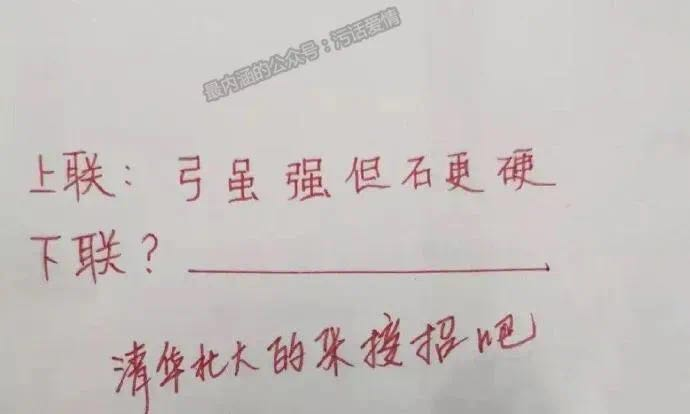 最内涵的公众号：污话爱情
上联：弓虽强但石更硬
下联？
清华北大的来接招吧